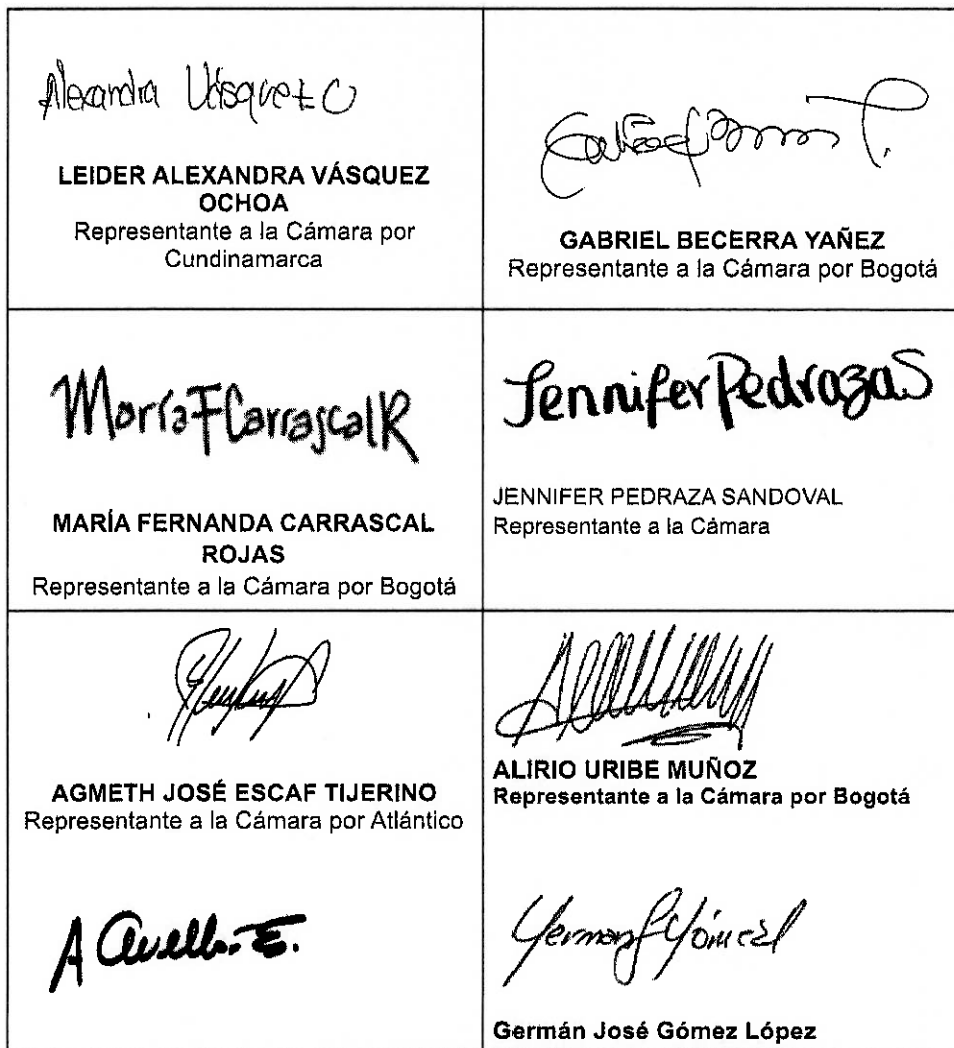 Alexandra Vásquez O
LEIDER ALEXANDRA VÁSQUEZ
OCHOA
Representante a la Cámara por
Cundinamarca
GABRIEL BECERRA YAÑEZ
Representante a la Cámara por Bogotá
María F Carrascal R
MARÍA FERNANDA CARRASCAL
ROJAS
Representante a la Cámara por Bogotá
Jennifer Pedraza S
JENNIFER PEDRAZA SANDOVAL
Representante a la Cámara
AGMETH JOSÉ ESCAF TIJERINO
Representante a la Cámara por Atlántico
ALIRIO URIBE MUÑOZ
Representante a la Cámara por Bogotá
Germán José Gómez López